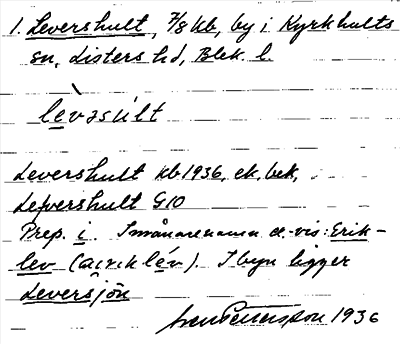 1. Levershult, 7/8 kb, by i Kyrkhults
sn, Listers hd, Blek. l.
lèvəsúlt
Levershult kb 1936, ek. bek,
Lefvershult G10
Prep. i. Inbnarenamn el. vis: Erik-
lev (airik lév). I byn ligger
Leversjön
Sven Pettersson 1936